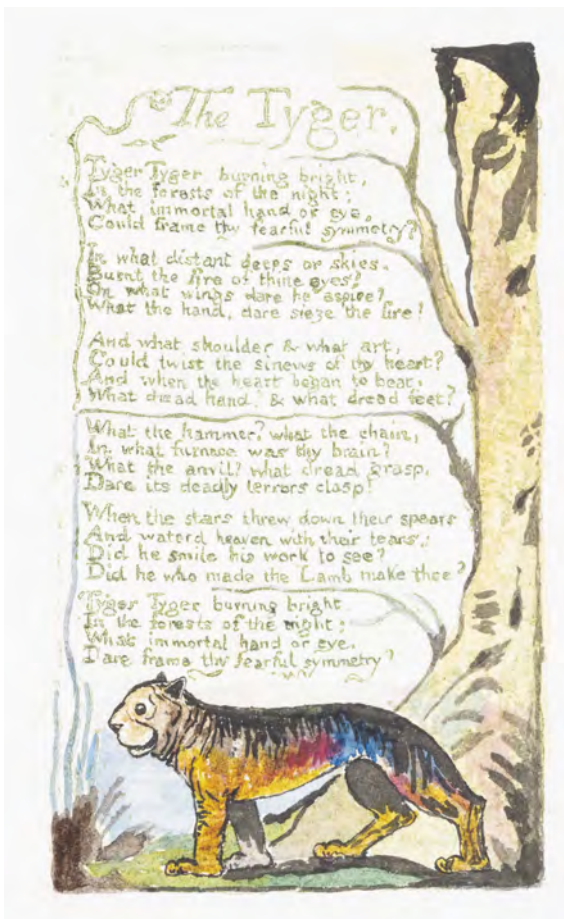 The Tyger.
Tyger Tyger burning bright,
In the forests of the night;
What immortal hand or eye,
Could frame thy fearful symmetry?
In what distant deeps or skies.
Burnt the fire of thine eyes?
On what wings dare he aspire?
What the hand, dare sieze the fire?
And what shoulder & what art,
Could twist the sinews of thy heart?
And when thy heart began to beat,
What dread hand? & what dread feet?
What the hammer? what the chain,
In what furnace was thy brain?
What the anvil? what dread grasp,
Dare its deadly terrors clasp!
When the stars threw down their spears
And water'd heaven with their tears:
Did he smile his work to see?
Did he who made the Lamb make thee?
Tyger Tyger burning bright
In the forests of the night;
What immortal hand or eye,
Dare frame thy fearful symmetry?